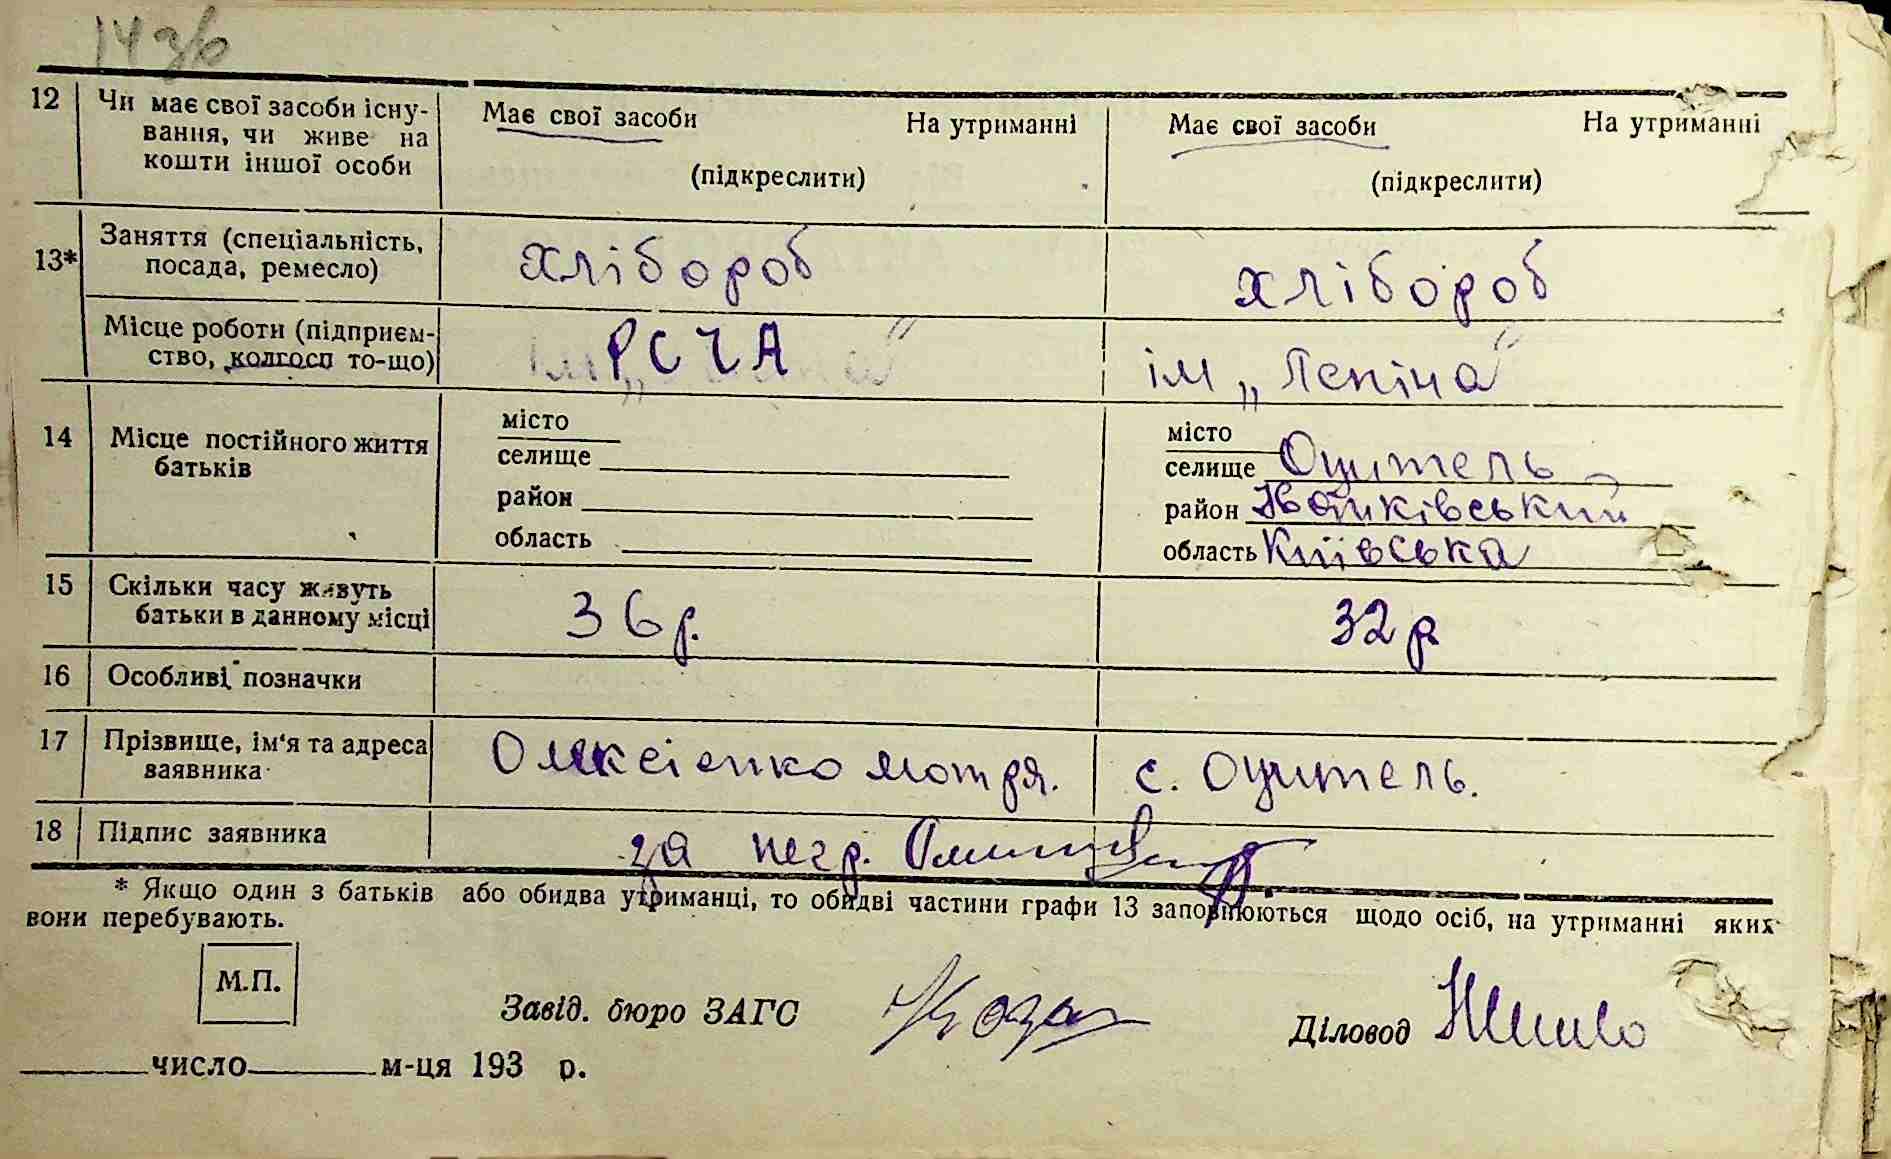 14 зв
12 Чи має свої засоби існу- Має свої засоби На утриманні Має свої засоби На утриманні
вання, чи живе на
кошти іншої особи (підкреслити) (підкреслити)
13* Заняття (спеціальність, хлібороб хлібороб
посада, ремесло)
Місце роботи (підприєм- РСЧА ім „Леніна"
ство, колгосп то-що)
14 Місце постійного життя місто місто
батьків селище селище Оцитель
район район Іванківський
область область Київська
15 Скільки часу живуть 36 р. 32 р
батьки в данному місці
16 Особливі позначки
17 Прізвище, ім'я та адреса Олексієнко Мотря. с. Оцитель.
заявника
18 Підпис заявника за негр.
* Якщо один з батьків або обидва утриманці, то обидві частини графи 13 заповнюються щодо осіб, на утриманні яких
вони перебувають.
М.П.
Завід. бюро ЗАГС Діловод
число м-ця 193 р.